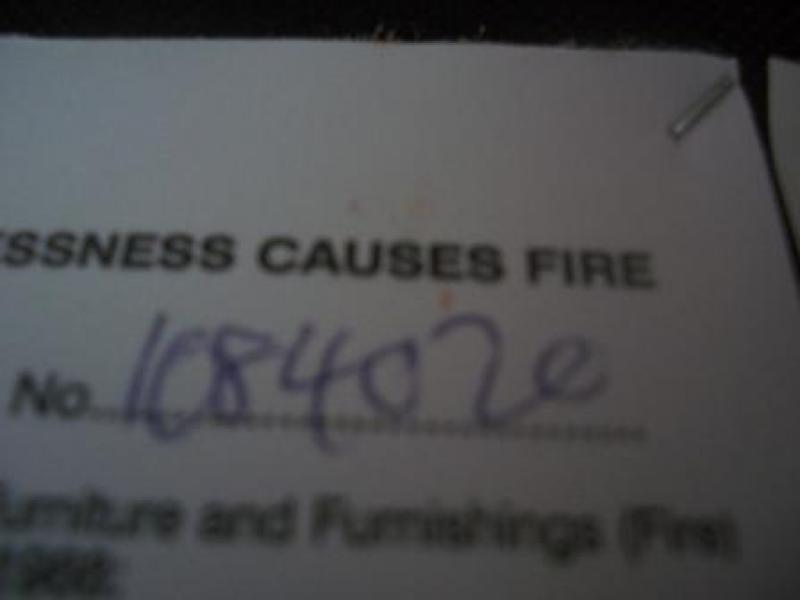 ESSNESS CAUSES FIRE
No. 1084020
Furniture and Furnishings (Fire)
1988